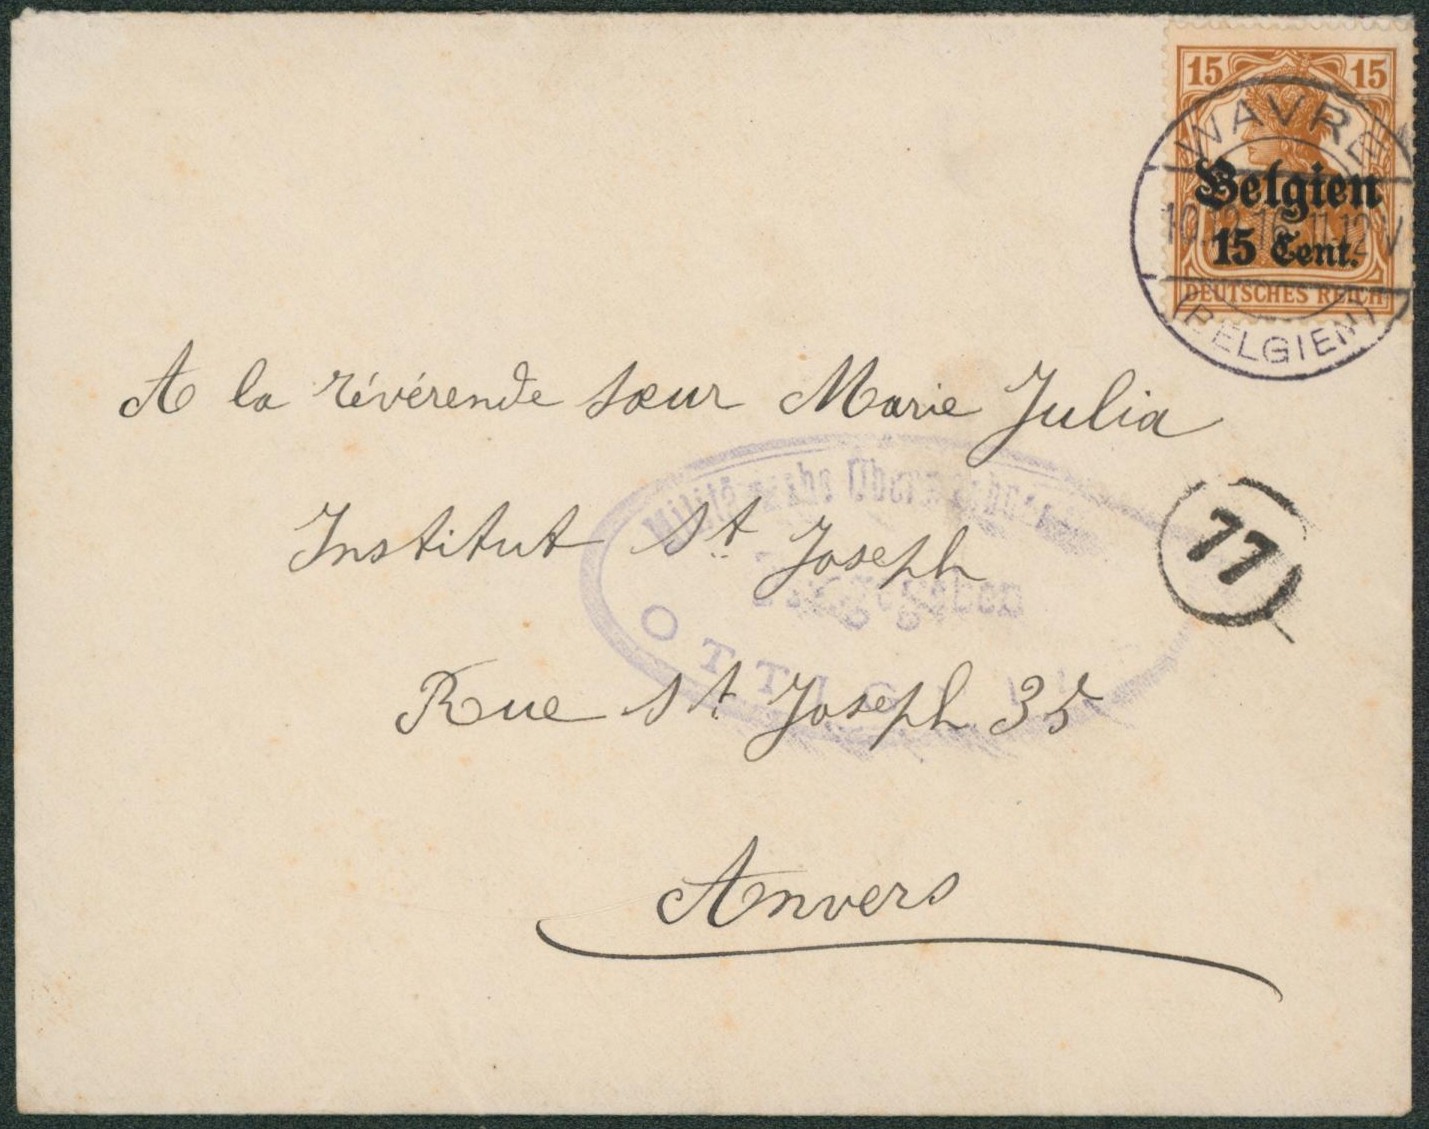 15 15
Belgien
15 Cent.
DEUTSCHES REICH
WAVRE
10.12.16. 11-12 V
(BELGIEN)
A la révérende sœur Marie Julia
Institut St Joseph
Rue St Joseph 35
Anvers
77
Militärische
OTTIG